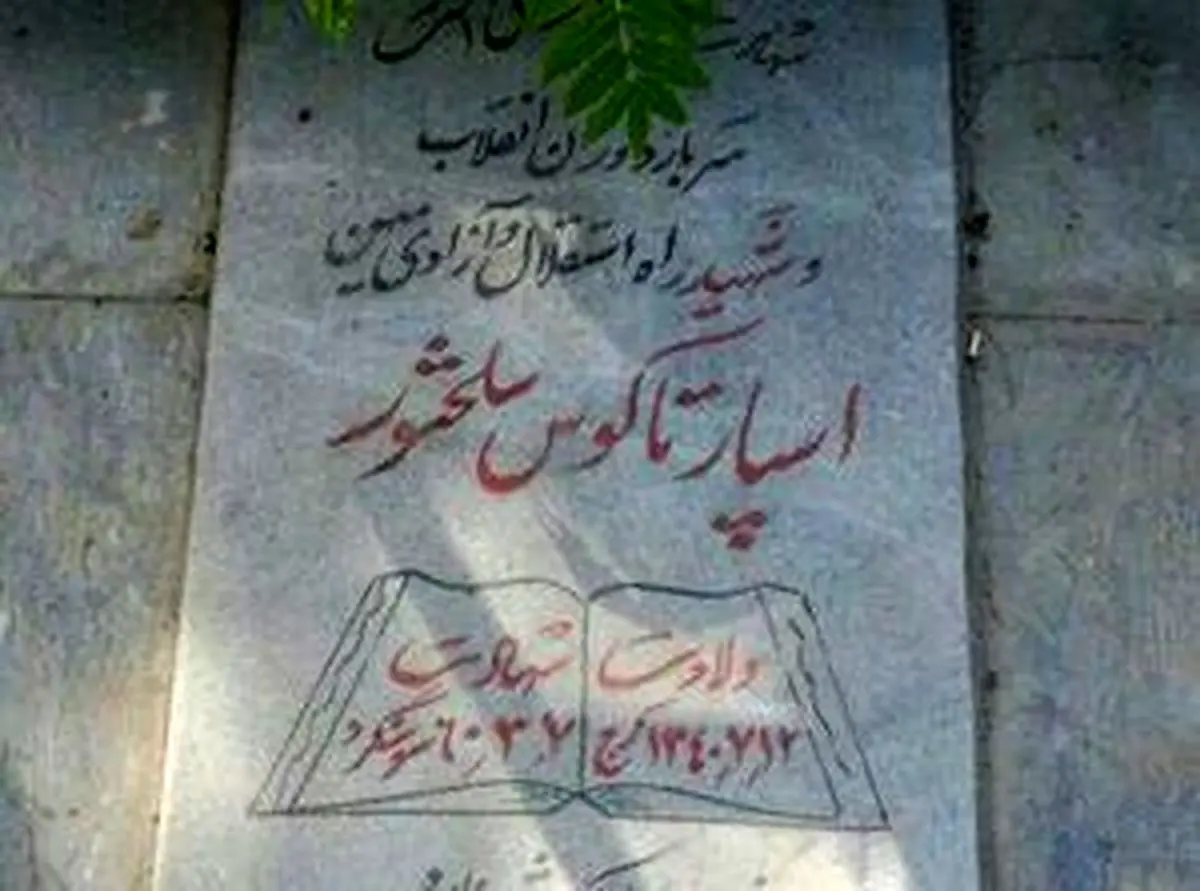 سرباز دوران انقلاب
و شهید راه استقلال و آزادی میهن
اسپارتاکوس سلحشور
ولادت شهادت
۱۳۴۰٫۷٫۱۲ کرج ۶۰٫۳٫۷ سوسنگرد